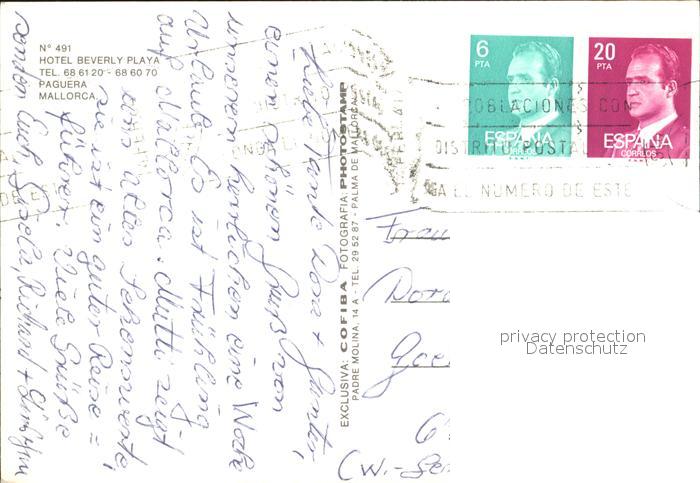 Nº 491
HOTEL BEVERLY PLAYA
TEL. 68 61 20 - 68 60 70
PAGUERA
MALLORCA
Liebe Tante Dora + Günter,
einen schönen Gruß von
unserem herrlichen eine Woche
Urlaub. Es ist Frühling
auf Mallorca. Mutti zeigt
uns alles Sehenswerte,
sie ist ein guter Reise=
führer. Viele Grüße
senden Euch, Gisela, Richard +
EXCLUSIVA: COFIBA FOTOGRAFIA: PHOTOSTAMP
PADRE MOLINA, 14 A - TEL. 29 52 87 - PALMA DE MALLORCA
6
PTA
ESPAÑA
20
PTA
ESPAÑA
CORREOS
POBLACIONES CON
DISTRITO POSTAL
A EL NUMERO DE ESTE
Frau
Doro
Goe
6
(W.-Ger
privacy protection
Datenschutz